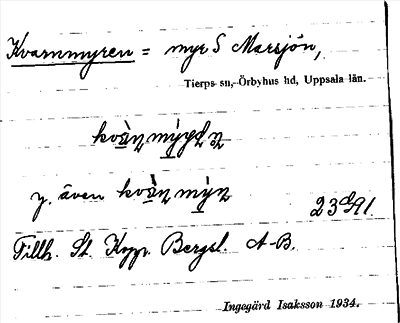 Kvarnmyren = myr S Marsjön,
Tierps sn, Örbyhus hd, Uppsala län.
y. även
23 91
Tillh. St. Kopp. Bergsl. A-B.
Ingegärd Isaksson 1934.